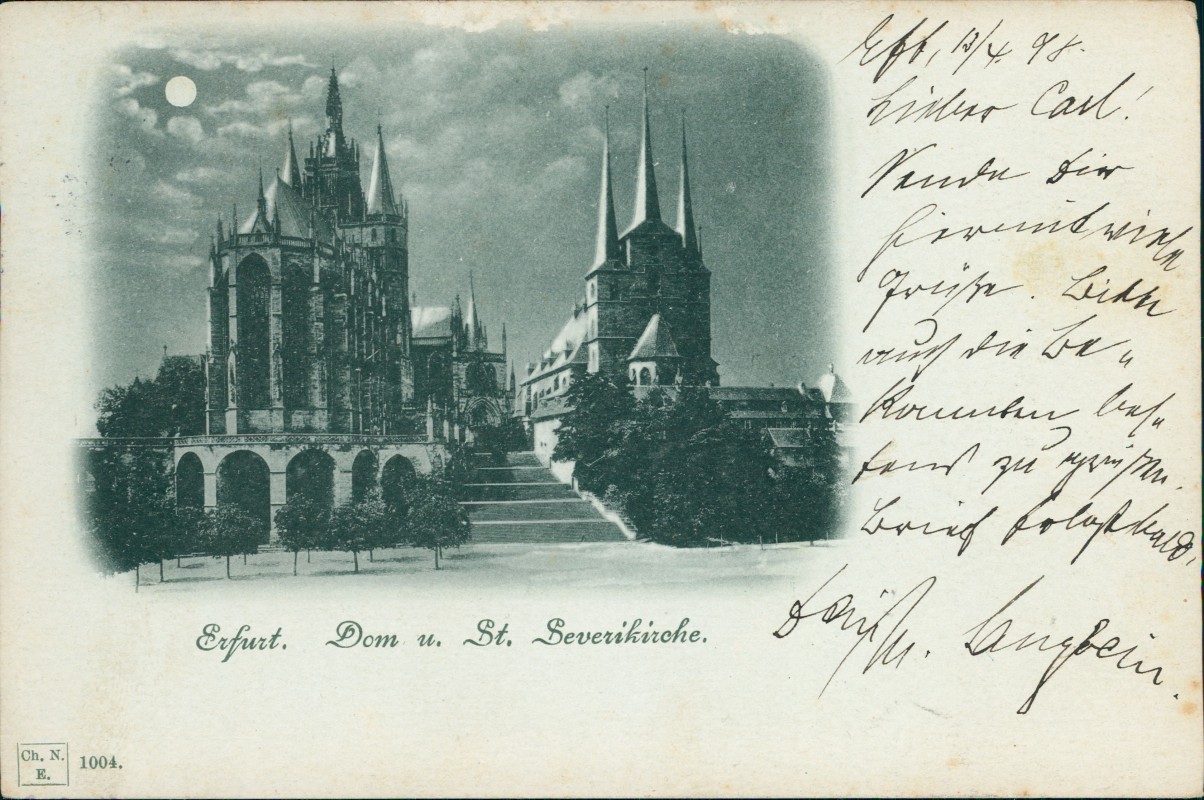 Eft, 13/4. 98.
Lieber Carl!
Sende Dir
hiermit viele
Grüße. Bitte
auch die Be-
kannten bes-
tens zu grüßen.
Brief folgt bald,
Langbein.
Erfurt. Dom u. St. Severikirche.
Ch. N.
E.
1004.